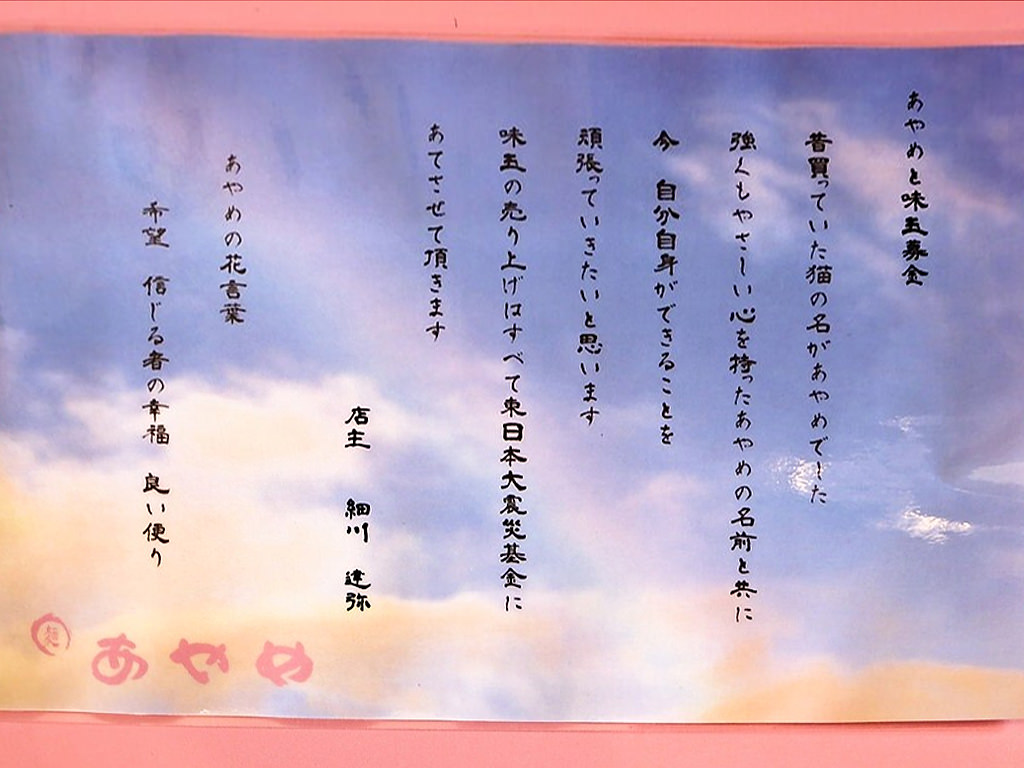 あやめと味玉募金
昔買っていた猫の名があやめでした
強くもやさしい心を持ったあやめの名前と共に
今 自分自身ができることを
頑張っていきたいと思います
味玉の売り上げはすべて東日本大震災基金に
あてさせて頂きます
店主 細川 達弥
あやめの花言葉
希望 信じる者の幸福 良い便り
麺 あやめ